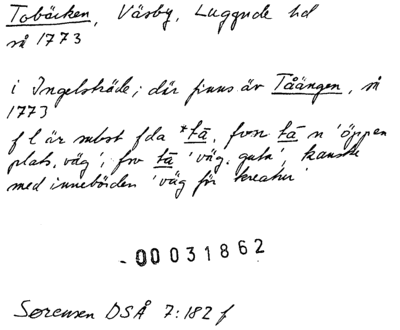 Tobäcken, Väsby, Luggude hd
så 1773
i Ingelsträde; där finns äv Tåängen, så
1773
f l är subst fda *tā, fsv tā n 'öppen
plats, väg', fno tā 'väg, gata', kanske
med innebörden 'väg för kreatur'
00031862
Sørensen DSÅ 7:182 f